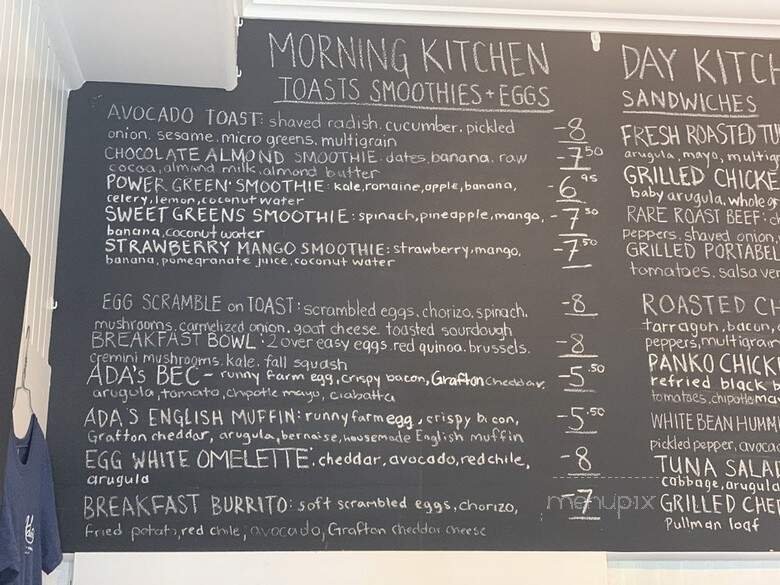 MORNING KITCHEN
TOASTS SMOOTHIES + EGGS
AVOCADO TOAST: shaved radish, cucumber, pickled -8
onion, sesame, micro greens, multigrain
CHOCOLATE ALMOND SMOOTHIE: dates, banana, raw -7.50
cocoa, almond milk, almond butter
POWER GREEN SMOOTHIE: kale, romaine, apple, banana, -6.95
celery, lemon, coconut water
SWEET GREENS SMOOTHIE: spinach, pineapple, mango, -7.50
banana, coconut water
STRAWBERRY MANGO SMOOTHIE: strawberry, mango, -7.50
banana, pomegranate juice, coconut water
EGG SCRAMBLE on TOAST: scrambled eggs, chorizo, spinach, -8
mushrooms, carmelized onion, goat cheese, toasted sourdough
BREAKFAST BOWL: 2 over easy eggs, red quinoa, brussels, -8
cremini mushrooms, kale, fall squash
ADA'S BEC - runny farm egg, crispy bacon, Grafton cheddar, -5.50
arugula, tomato, chipotle mayo, ciabatta
ADA'S ENGLISH MUFFIN: runny farm egg, crispy bacon, -5.50
Grafton cheddar, arugula, bernaise, housemade English muffin
EGG WHITE OMELETTE: cheddar, avocado, red chile, -8
arugula
BREAKFAST BURRITO: soft scrambled eggs, chorizo, -7
fried potato, red chile, avocado, Grafton cheddar cheese
DAY KITCH
SANDWICHES
FRESH ROASTED TU
arugula, mayo, multig
GRILLED CHICKE
baby arugula, whole gr
RARE ROAST BEEF: ch
peppers, shaved onion,
GRILLED PORTABEL
tomatoes, salsa ver
ROASTED CH
tarragon, bacon,
peppers, multigrain
PANKO CHICK
refried black b
tomatoes, chipotle ma
WHITE BEAN HUMM
pickled pepper, avoca
TUNA SALA
cabbage, arugula
GRILLED CHE
Pullman loaf
menupix